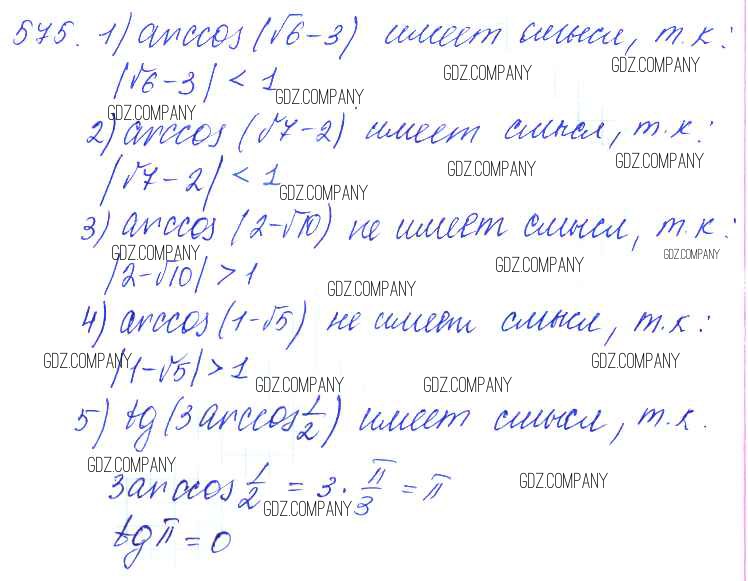 575. 1) arccos (√6-3) имеет смысл, т.к:
GDZ.COMPANY GDZ.COMPANY
|√6-3| < 1
GDZ.COMPANY
GDZ.COMPANY
2) arccos (√7-2) имеет смысл, т.к:
GDZ.COMPANY GDZ.COMPANY
|√7-2| < 1
GDZ.COMPANY
3) arccos (2-√10) не имеет смысл, т.к:
GDZ.COMPANY GDZ.COMPANY GDZ.COMPANY
|2-√10| > 1
GDZ.COMPANY
4) arccos (1-√5) не имеет смысл, т.к:
GDZ.COMPANY GDZ.COMPANY
|1-√5| > 1
GDZ.COMPANY GDZ.COMPANY
5) tg (3 arccos 1/2) имеет смысл, т.к.
GDZ.COMPANY GDZ.COMPANY
3 arccos 1/2 = 3 · π/3 = π
GDZ.COMPANY
tg π = 0